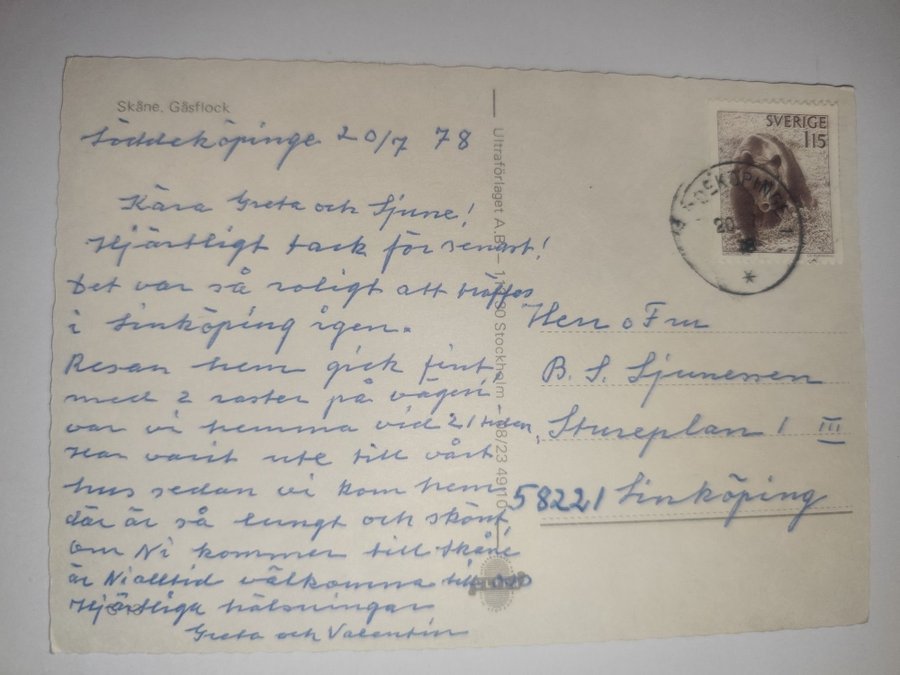 Skåne, Gåsflock
Löddeköpinge 20/7 78
Kära Greta och Sjune!
Hjärtligt tack för senast!
Det var så roligt att träffas
i Linköping igen.
Resan hem gick fint,
med 2 raster på vägen
var vi hemma vid 21 tiden,
Har varit ute till vårt
hus sedan vi kom hem
där är så lungt och skönt
Om Ni kommer till Skåne
är Ni alltid välkomna till oss
Hjärtliga hälsningar
Greta och Valentin
Ultraförlaget A.B. Stockholm 08/23 49 10
SVERIGE
115
20
78
Herr o Fru
B. S. Sjunesson
Stureplan 1 III
58221 Linköping